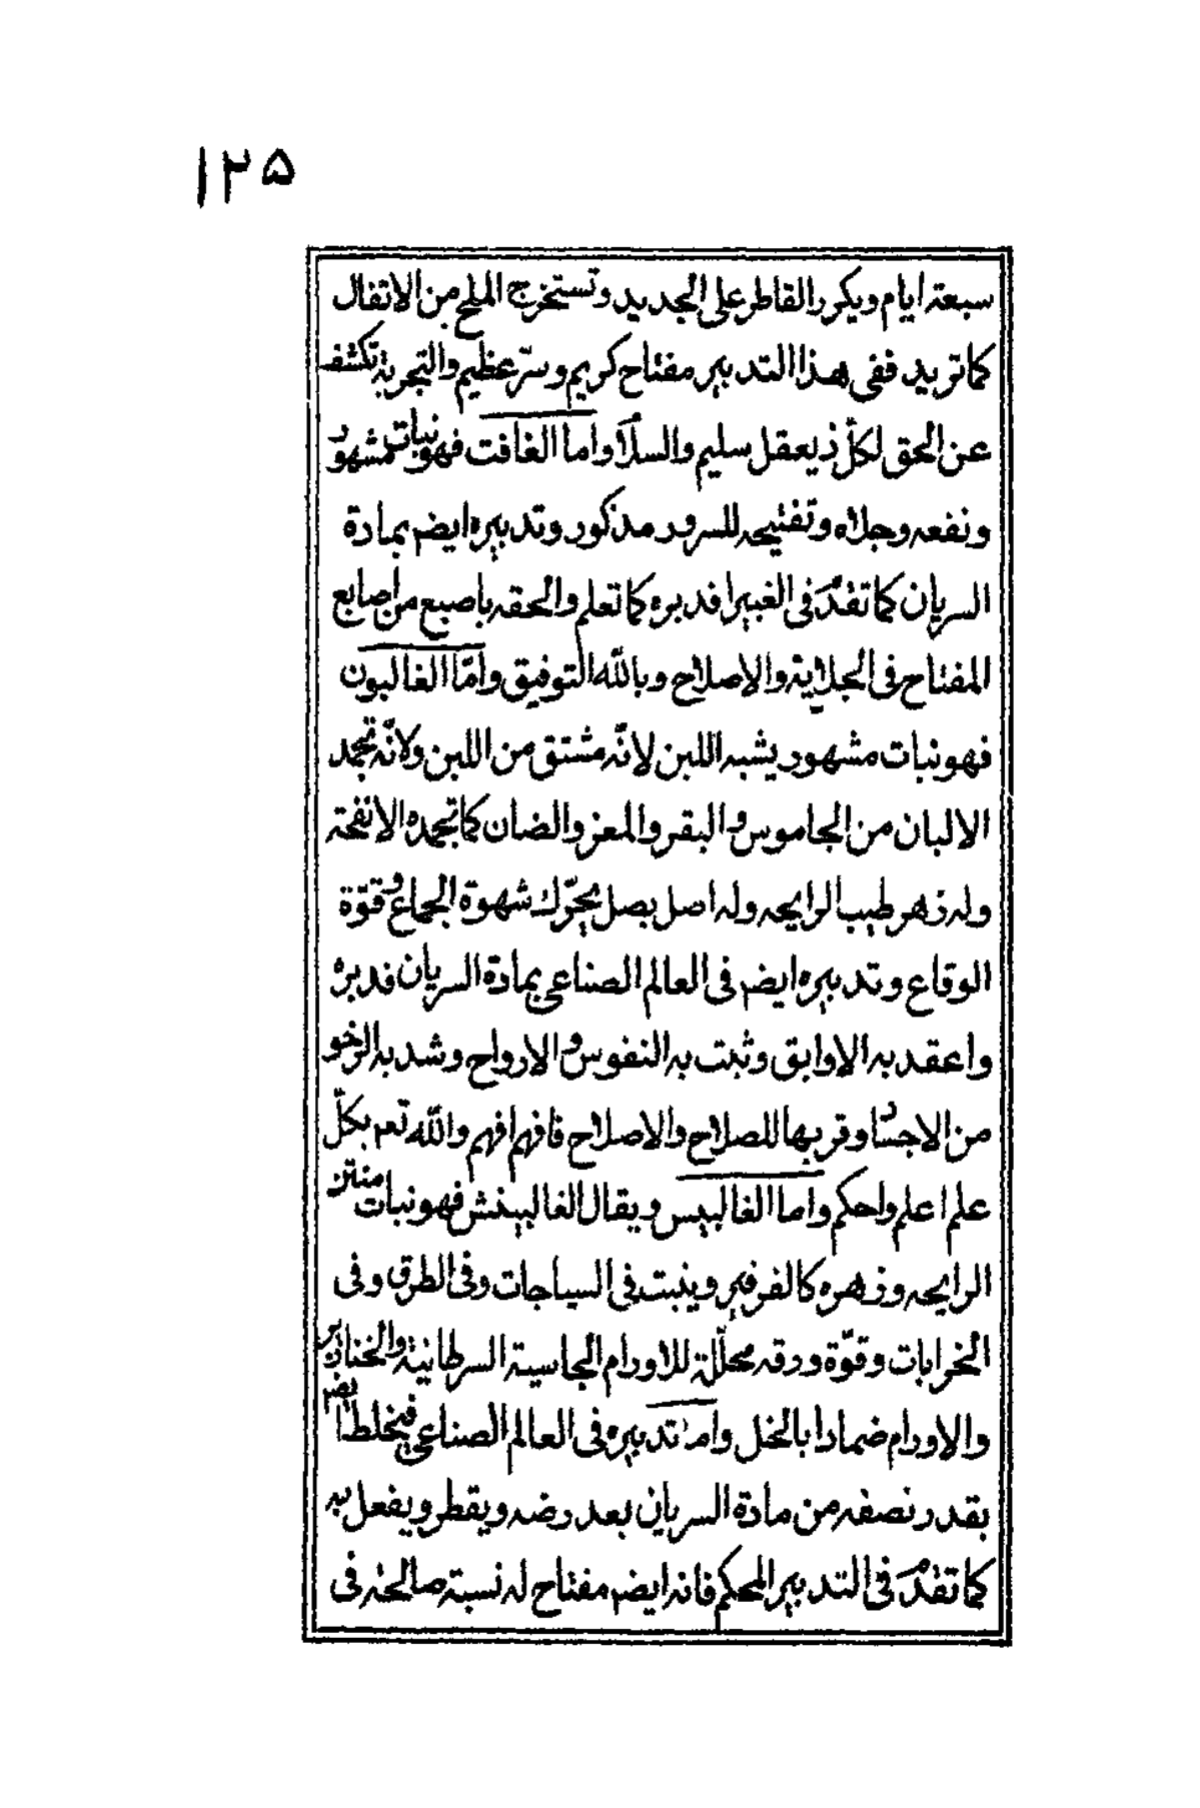 ۱۲۵
سبعة ايام ويكرر القاطر على الجديد وتستخرج الملح من الاتفال
كما تريد ففى هذا التدبير مفتاح كريم وسرّ عظيم والتجربة تكشف
عن الحق لكلّ ذى عقل سليم والسلام واما الغافت فهو نبات مشهور
ونفعه وجلاه وتفتيحه للسرور مذكور وتدبيره ايضم بمادة
السريان كما تقدّم فى الغبيرا فدبره كما تعلم والحقه باصبع من اصابع
المفتاح فى الجلابية والاصلاح وبالله التوفيق وامّا الغالبون
فهو نبات مشهور يشبه اللبن لانّه مشتق من اللبن ولانّه تجمد
الالبان من الجاموس والبقر والمعز والضان كما تجمده الانفحة
وله زهر طيب الرايحه وله اصل بصل يحرّك شهوة الجماع وقوّة
الوقاع وتدبيره ايضم فى العالم الصناعى بمادة السريان فدبره
واعقد به الاوابق وثبت به النفوس والارواح وشد به الرخو
من الاجساد وقربها للصلاح والاصلاح فافهم افهم والله تعم بكلّ
علم اعلم واحكم واما الغالبيس ويقال الغالبينش فهو نبات منتن
الرايحه وزهره كالفرفير وينبت فى السياجات وفى الطرق وفى
الخرابات وقوّة ورقه محلّلة للاورام الجاسية السرطانية والخنازير
والاورام ضمادا بالخل واما تدبيره فى العالم الصناعى فيخلط ايضم
بقدر نصفه من مادة السريان بعد رضه ويقطر ويفعل به
كما تقدّم فى التدبير المحكم فانه ايضم مفتاح له نسبة صالحة فى